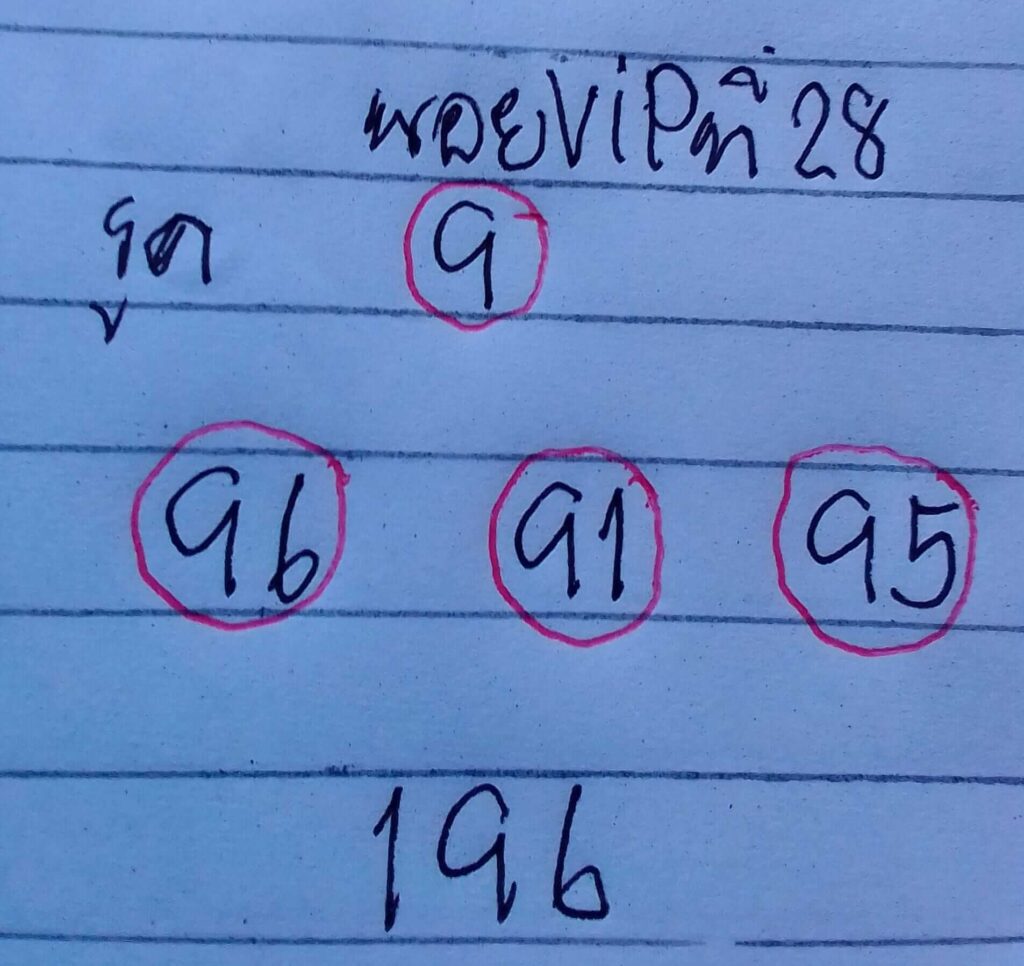 หอยViPที่ 28
รูด 9
96 91 95
196